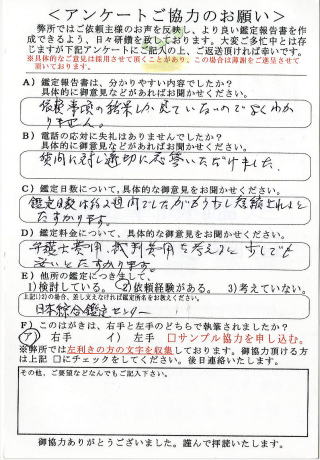 ＜アンケートご協力のお願い＞
弊所ではご依頼主様のお声を反映し、より良い鑑定報告書を作
成できるよう、日々研鑽を致しております。大変ご多忙中とは存
じますが下記アンケートにご記入の上、ご返送頂ければ幸いです。
※具体的なご意見は採用させて頂くことがあり、この場合は薄謝をご進呈させて
頂いております。
A）鑑定報告書は、分かりやすい内容でしたか？
具体的に御意見などがあればお聞かせください。
依頼事項の結果しか見ていないのでよくわか
りません。
B）電話の応対に失礼はありませんでしたか？
具体的に御意見などがあればお聞かせください。
質問に対し適切に応答いただけました。
C）鑑定日数について、具体的な御意見をお聞かせください。
鑑定日数は約2週間でしたがもう少し短縮されると
たすかります。
D）鑑定料金について、具体的な御意見をお聞かせください。
弁護士費用、裁判費用を考えると少しでも
安いとたすかります。
E）他所の鑑定につき生して、
1)検討している。 2)依頼経験がある。 3)考えていない。
上記1)2)の場合、差し支えなければ鑑定所名をお教えください。
日本綜合鑑定センター
F）このはがきは、右手と左手のどちらで執筆されましたか？
ア） 右手 イ） 左手 □サンプル協力を申し込む。
※弊所では左利きの方の文字を収集しております。御協力頂ける方
は上記□にチェックをしてください。後日連絡いたします。
その他、ご要望などなんでもご記入下さい。
御協力ありがとうございました。謹んで拝読いたします。